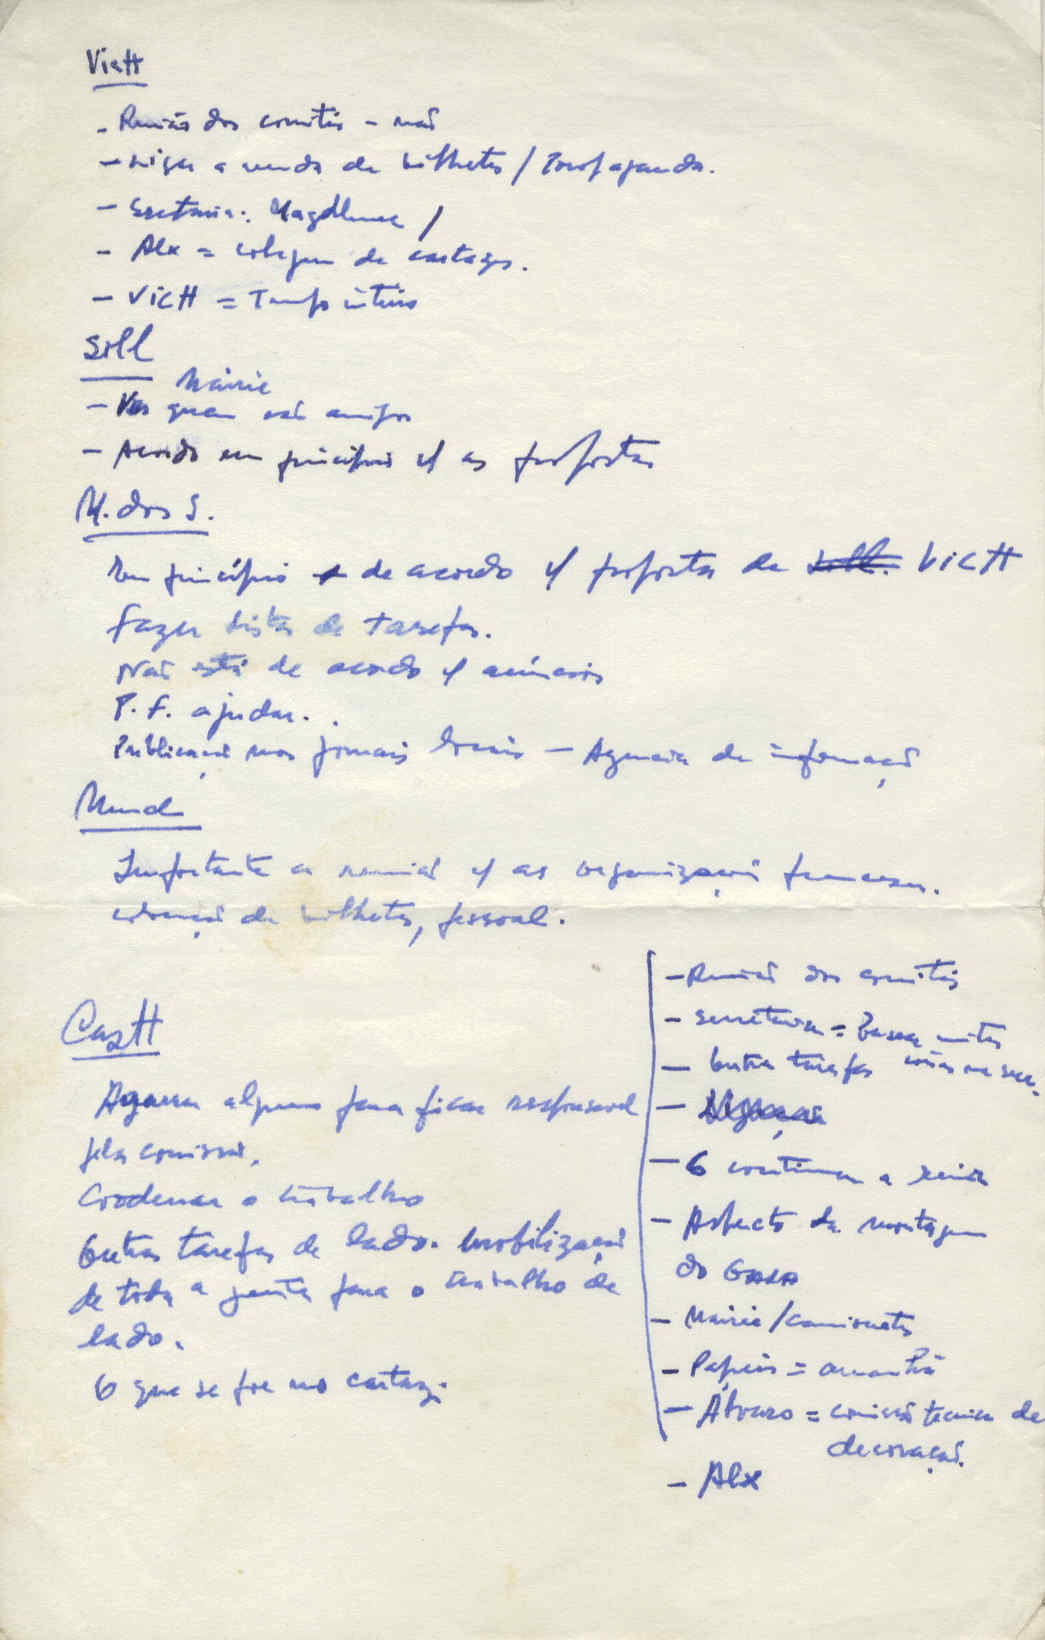 VictH
- Reunião dos comités - não
- Ligar a venda de bilhetes / Propaganda.
- Secretaria: Magdlene /
- Alx = colagem de cartazes.
- VICH = Tempo inteiro
Soll
Mairie
- Ver quem são amigos
- Acordo em princípio c/ as propostas
M. dos S.
Em princípio de acordo c/ propostas de Soll. VICTH
Fazer lista de tarefas.
Não está de acordo c/ anúncios
P.F. ajudar.
Publicação nos jornais locais - Agencia de informação
Mund
Importante a reunião c/ as organizações francesas.
de bilhetes, pessoal.
CastH
Agarrar alguem para ficar responsavel
pela comissão.
Coordenar o trabalho
Outras tarefas de lado. Mobilização
de toda a gente para o trabalho de
lado.
O que se poe no cartaz.
- Reunião dos comités
- Secretaria =
- Outras tarefas
-
- O continua a reunir
- Aspecto da montagem
do GALA
- Mairie / camionetas
- Papeis = amanhã
- Álvaro = comissão tecnica de
decoração.
- Alx